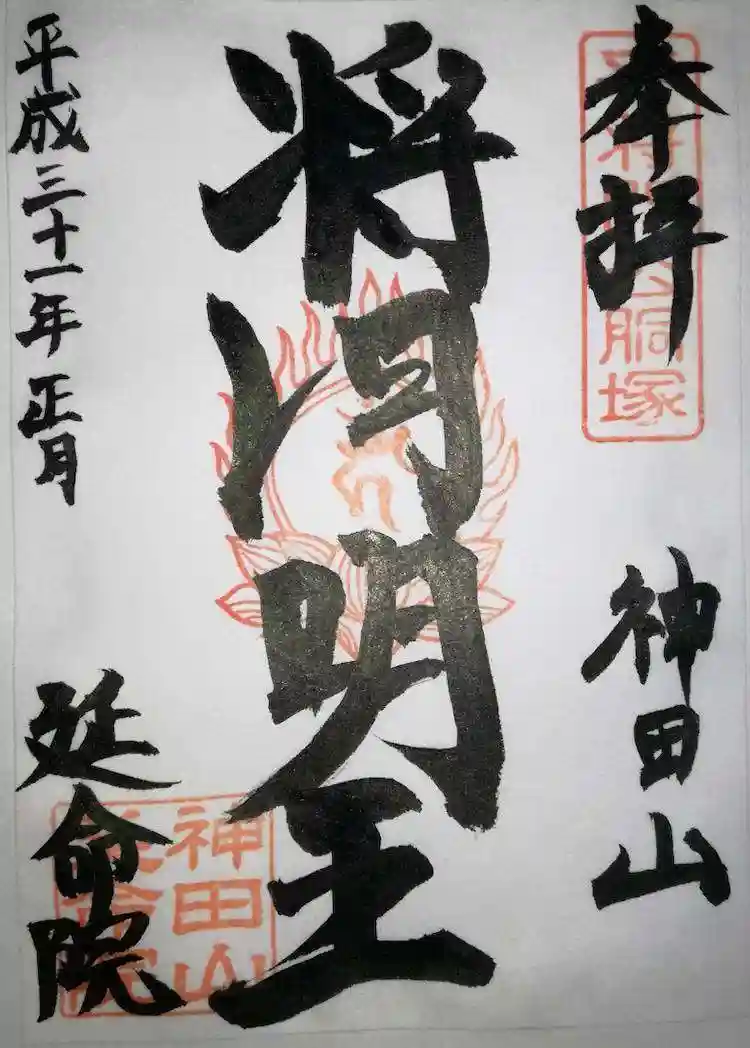 奉拝
神田山
将門明王
平成三十一年正月
延命院
平将門公胴塚
神田山延命院